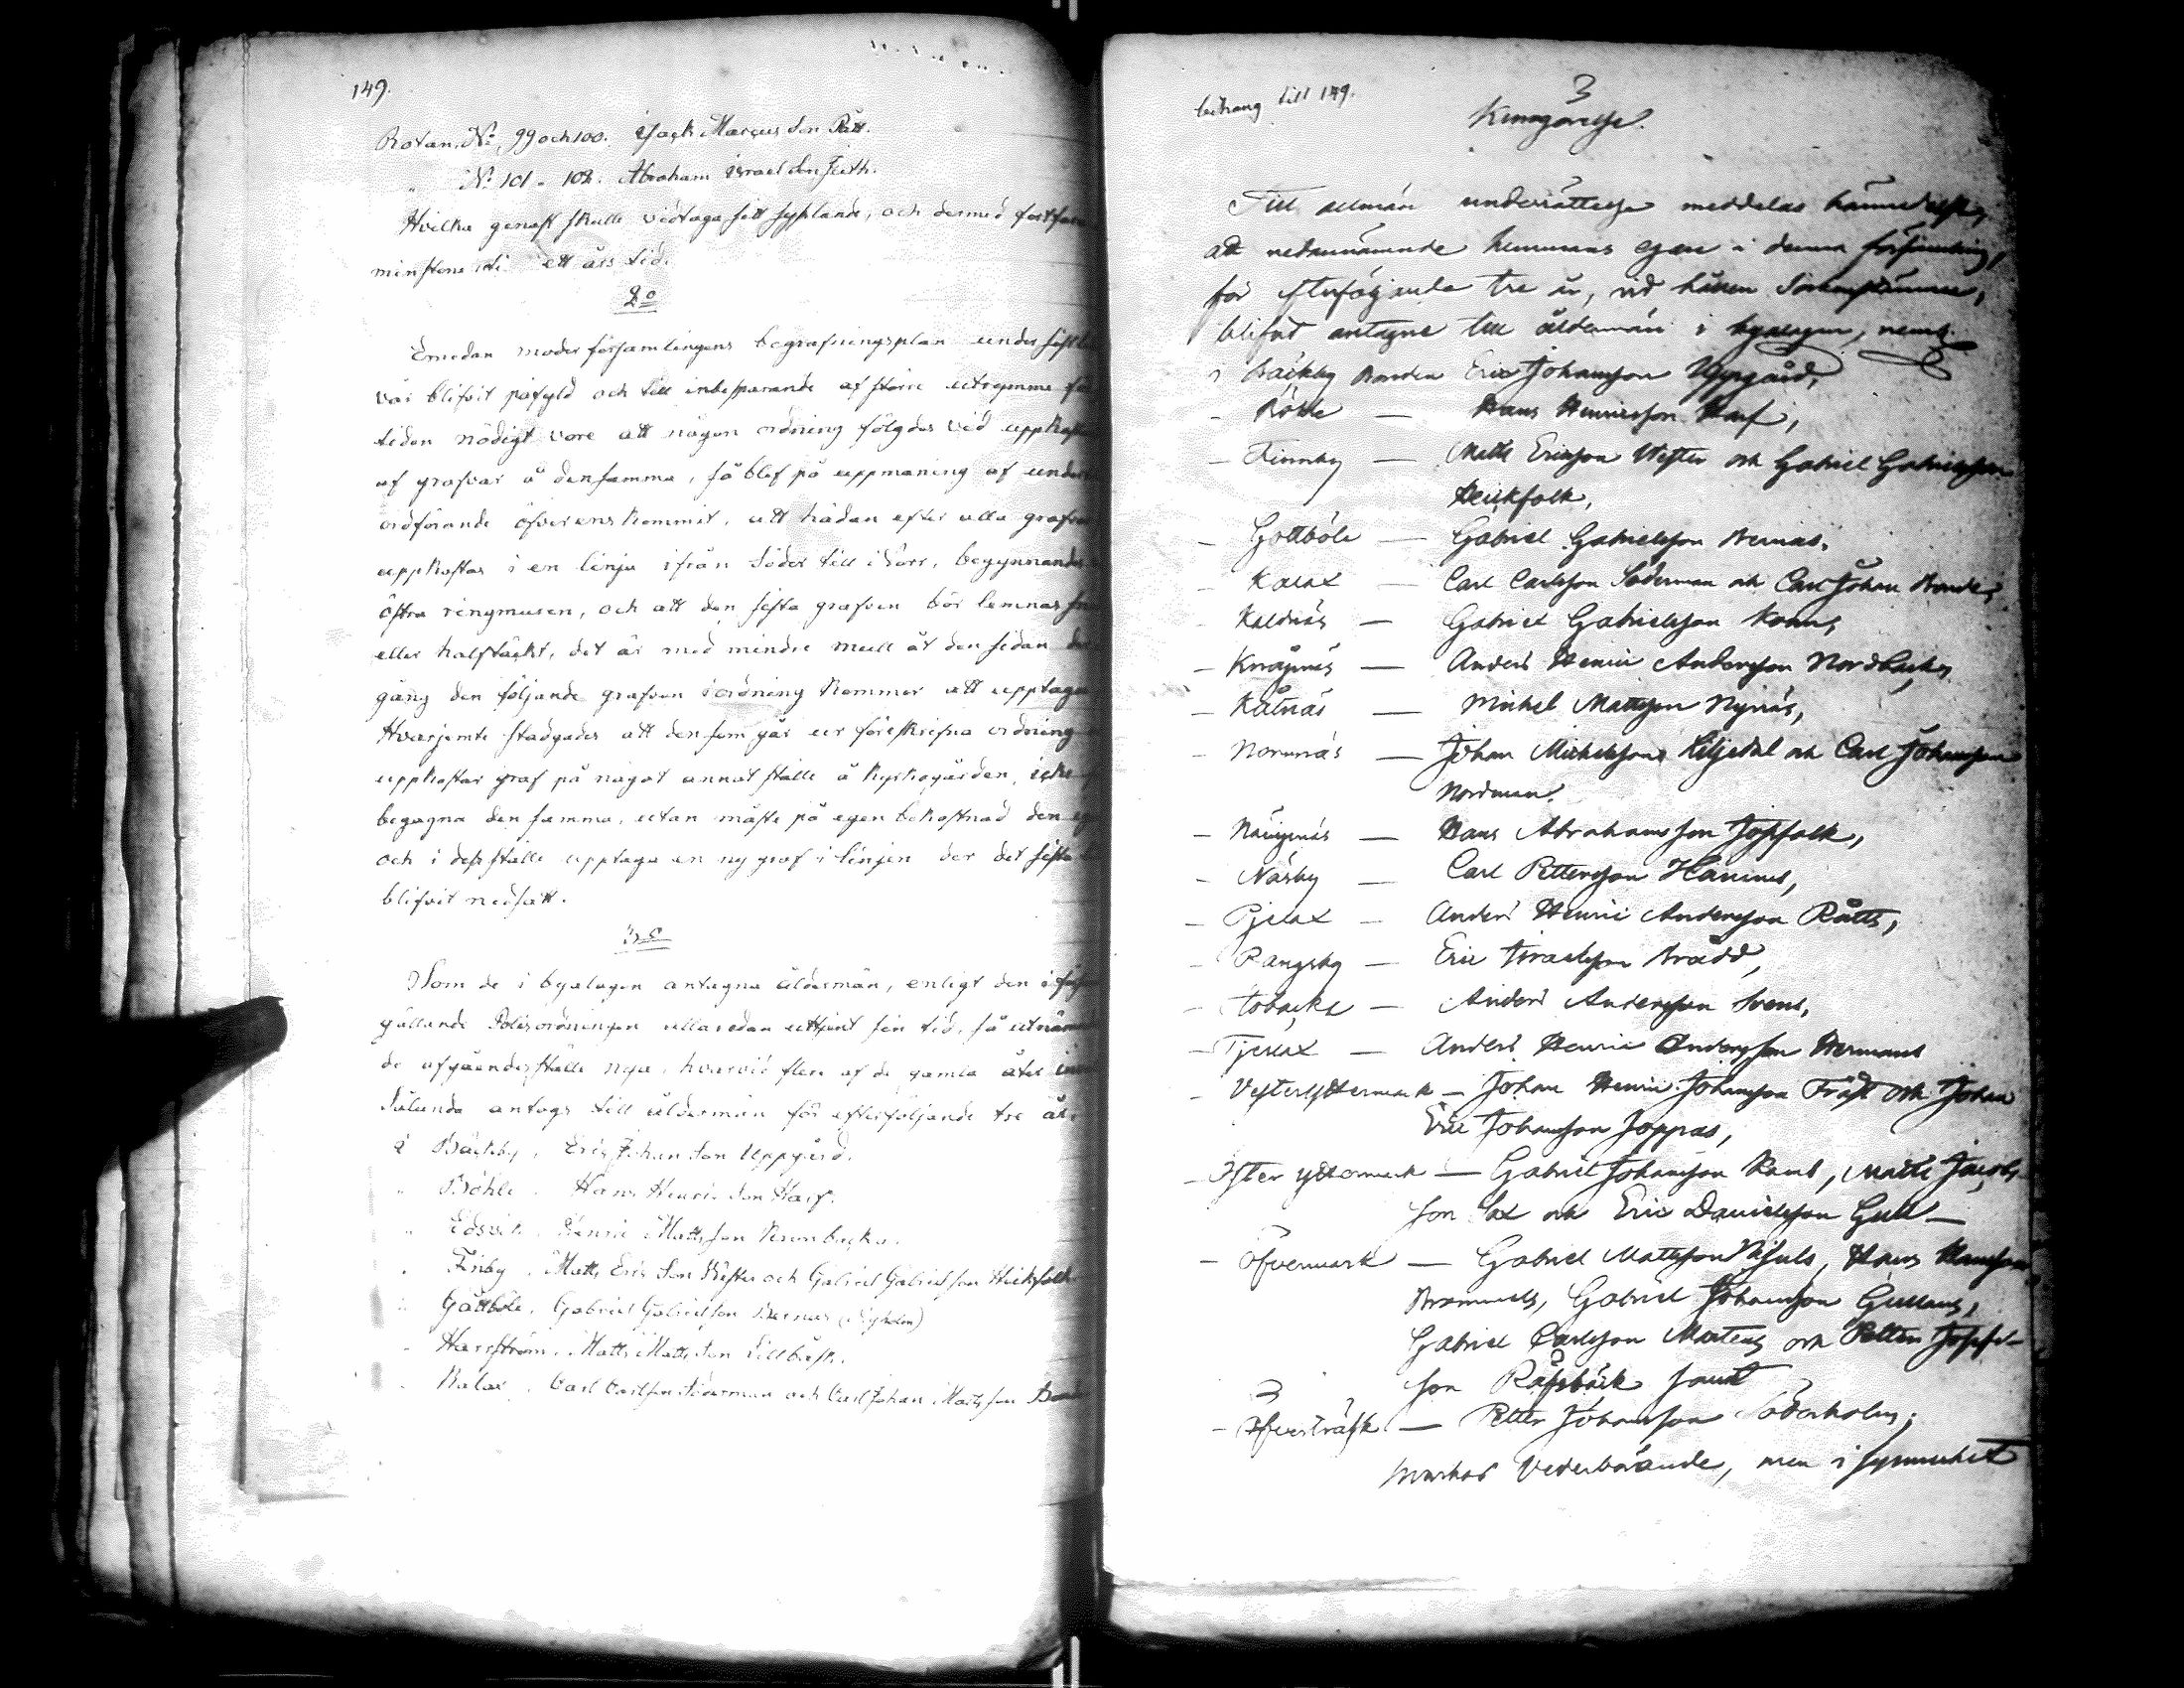 149.
Rotan, No 99 och 100. Isack Marcus son Rätt.
" No 101 - 102. Abraham Israel son
Hvilka genast skulle vidtaga sitt sysslande, och dermed
minstone i ett års tid.
2o
Emedan moder församlingens begrafningsplan under
vår blifvit påfyld och till inbesparande af större utrymme
tiden nödigt vore att någon ordning följdes vid
af grafvar å densamma, så blef på uppmaning af
ordförande öfverenskommit, att hädan efter alla
uppkastas i en linja ifrån Söder till Norr, begynnande
östra ringmuren, och att den sista grafven bör lemnas
eller halftäckt, det är med mindre mull åt den sidan
gång den följande grafven i ordning kommer att upptagas
Hvarjemte stadgades att den som går ur föreskrifna ordning
uppkastar graf på något annat ställe å kyrkogården, icke
begagna densamma, utan måste på egen bekostnad den
och i dess ställe upptaga en ny graf i linjen der det sista
blifvit nedsatt.
3o
Som de i byalagen antagna åldermän, enligt den
gällande Polisordningen allaredan uttjent sin tid, så
de afgåendes ställe nya, hvarvid flere af de gamla åter
Sålunda antogs till åldermän för efterföljande tre år.
i Bäckby, Eric Johan son Uppgård.
" Böhle, Hans Henric son Harf.
" Edsvik, Henric Matts son
" Finby, Matts Eric son Wester och Gabriel Gabriel son Heickfolk
" Gåttböle, Gabriel Gabriel son Bernas
" Harrström, Matts Matts son Lillbäck.
" Kalax, Carl Carl son Söderman och Carl Johan Matts son
bihang till 149.
Kungörelse.
Till allmän underrättelse meddelas härmedelst,
att nedannämnde hemmans egare i denna församling,
för efterföljande tre år, vid hållen Sockenstämma,
blifvit antagne till åldermän i byalagen, neml.
i Bäckby Bonden Eric Johansson Uppgård,
- Böhle — Hans Henricsson Harf,
- Finnby — Matts Ericsson Wester och Gabriel Gabrielsson
Heickfolk,
- Gottböle — Gabriel Gabrielsson Bernas,
- Kalax — Carl Carlsson Söderman och Carl Johan
- Kaldnäs — Gabriel Gabrielsson
- Knåpnäs — Anders Henric Andersson Nordback,
- Kåtnäs — Michel Mattsson Nynäs,
- Norrnäs — Johan Michelsson Liljedal och Carl Johansson
Nordman.
- Nämpnäs — Hans Abrahamsson Jossfolk,
- Näsby — Carl Pettersson Hannus,
- Pjelax — Anders Henric Andersson Rätts,
- Rangsby — Eric Israelsson Brådd,
- Tobacka — Anders Andersson Svens,
- Tjerlax — Anders Henric Andersson Hermans
- VesterYttermark — Johan Henric Johansson Fräst och Johan
Eric Johansson Joppas,
- Öster yttermark — Gabriel Johansson Knut, Matts Jacobs-
son Sax och Eric Danielsson Gull —
- Öfvermark — Gabriel Mattsson Nisula, Hans Hansson
Brommels, Gabriel Johansson Gullans,
Gabriel Carlsson Mårtens och Petter Josef-
son Råssbäck samt
- Öfverträsk — Petter Johansson Söderholm;
Vederbörande, men i synnerhet